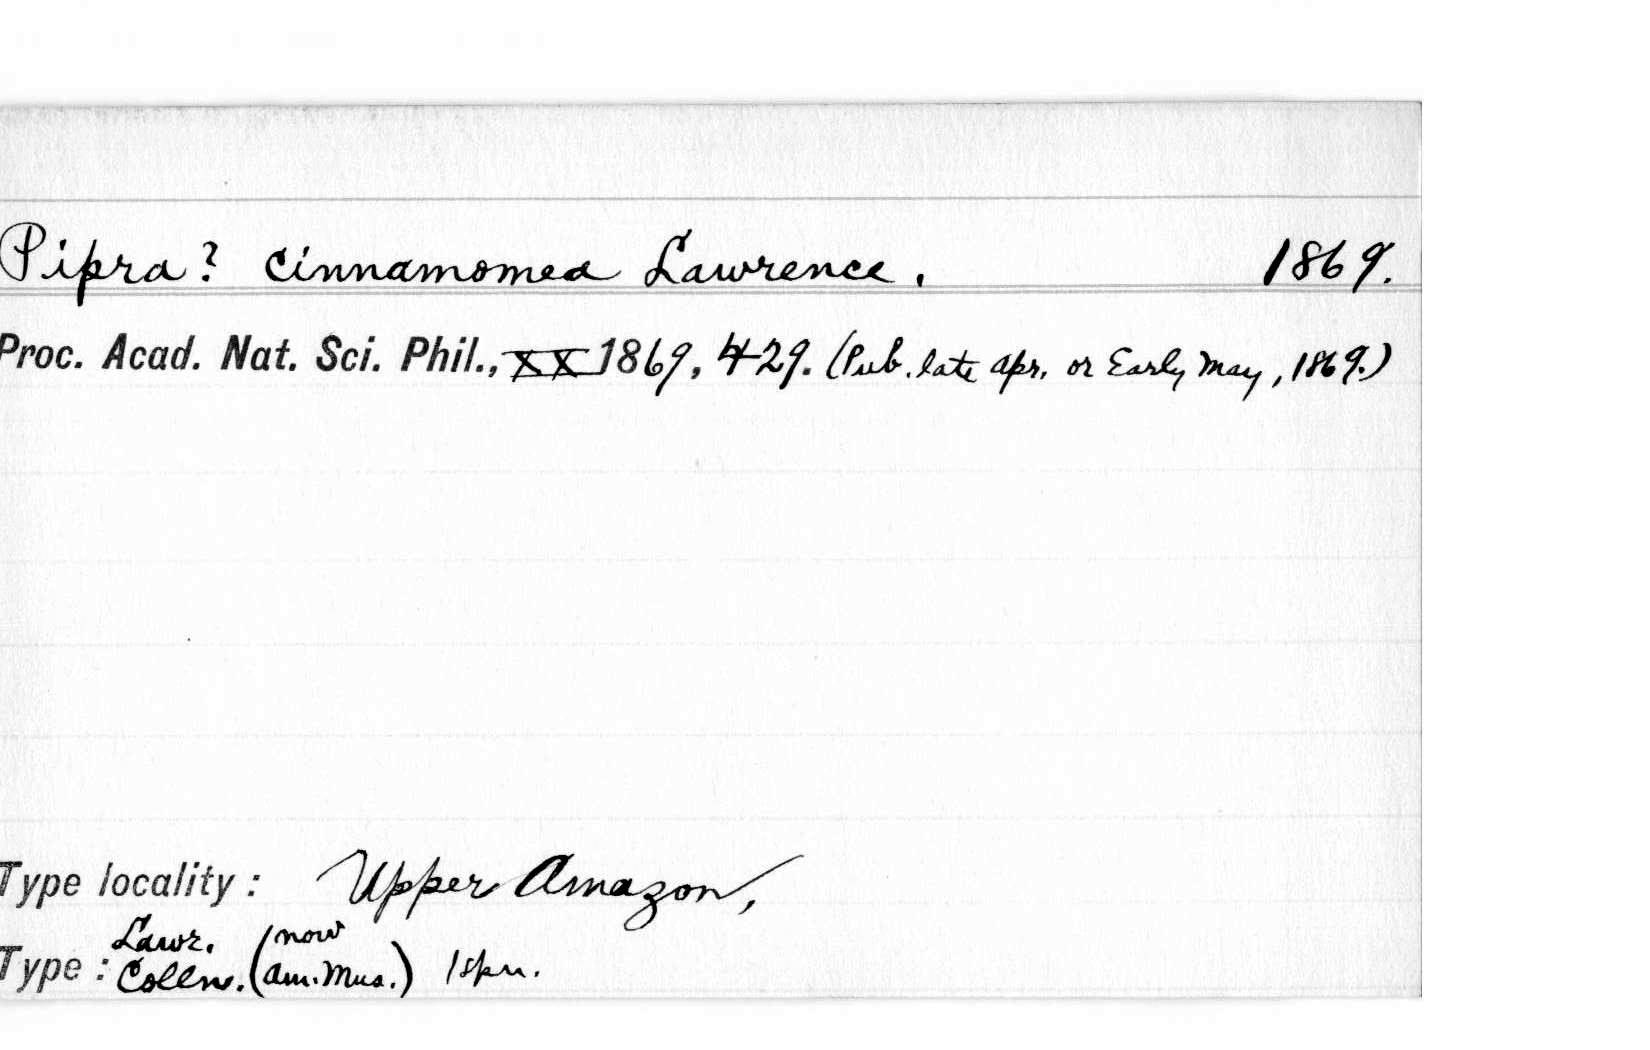 Pipra? cinnamomea Lawrence. 1869.
Proc. Acad. Nat. Sci. Phil., XX 1869, 429. (Pub. late Apr. or Early May, 1869.)
Type locality: Upper Amazon,
Lawr. (now
Type: Colln. Am. Mus.) 1 spn.